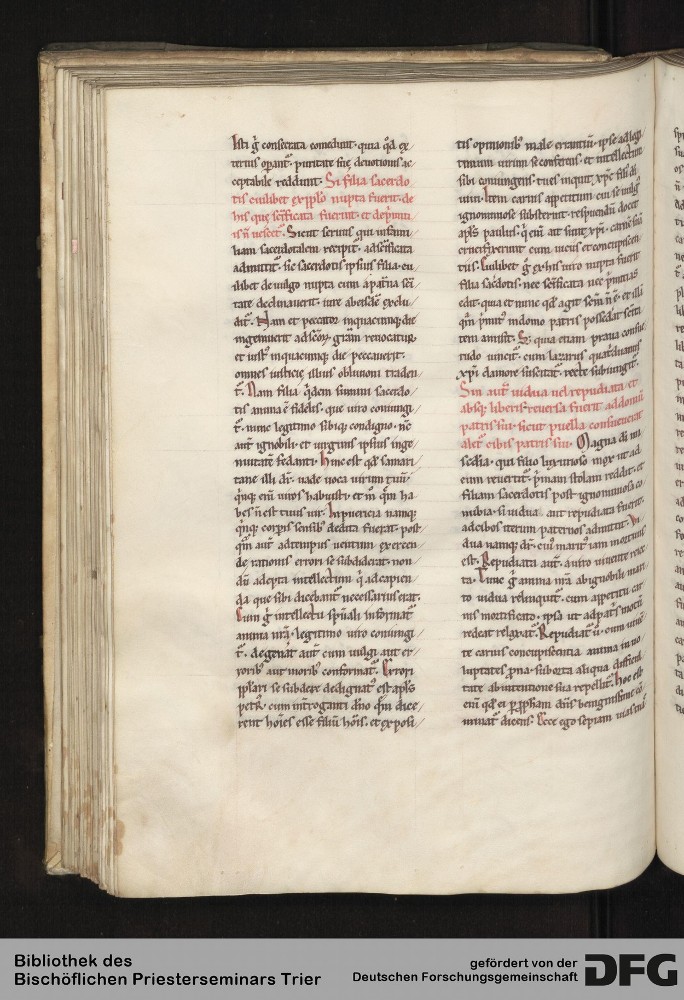 Isti g̃ consecrata comedunt· quia q̃d ex
terius opant̃· puritate suę deuotionis ac
ceptabile reddunt· Si filia sacerdo
tis cuilibet ex pplo nupta fuerit· de
his quę sc̃ificata fuerint et de pmi
is ñ uescet· Sicut seruus qui
sacerdotalem recipit· ad sc̃ificata
admittit̃· sic sacerdotis ipsius filia· cu
ilibet de uulgo nupta cum a pat̃na sc̃i
tate declinauerit· iure abesse exclu
dit̃· Nam et peccator in quacumq; die
ingemuerit ad grãm reuocatur·
et iust̃ in quacumq; die peccauerit·
omnes iusticię illius obliuioni traden
t̃· Nam filia q̃dem summi sacerdo
tis anima ẽ fidelis· que uiro coniungi
t̃· nunc legitimo sibiq; condigno· nc̃
aut̃ ignobili· et uirginis ipsius inge
nuitatẽ fedanti· hinc est qd̃ samari
tane illi dr̃· uade uoca uirum tuũ·
q̃nq; eni uiros habuisti· et m̃ quẽ ha
bes ñ est tuus uir· In puericia namq;
q̃nq; corpis sensib; dedita fuerat· post
q̃m aut̃ ad tempus uentum
de rationis errori se subdiderat· non
dũ adepta intellectum q̃ ad capien
da que sibi dicebant̃ necessarius erat·
Cum g̃ intellectu spũali informat̃
anima nr̃a· legitimo uiro coniungi
t̃· degenat aut̃ cum uulgi aut er
rorib; aut morib; conformat̃· Errori
pplari se subdere dedignat̃ est apl̃s
petr̃· cum int̃roganti dño quẽm dice
rent hoĩes esse filiũ hoĩs· et exposi
tis opinionib; male errantiũ· ipse ad legi
timum uirum se conferens· et intellectum
sibi coniungens· tu es inquit xp̃c fili dĩ
uiui· Item carnis appetitum cui se uulg̃
ignominiose substernit· respuendũ docet
apl̃s paulus· q̃ enĩ ait sunt xp̃i· carnẽ suã
crucifixerunt cum uiciis et concupiscen
tiis· Cuilibet g̃ ex his uiro nupta fuerit
filia sac̃dotis· nec sc̃ificata nec p̃mitias
edit· quia et nunc qd̃ agit sc̃m ñ ẽ· et illã
quã p̃mit̃ in domo patris possedat sc̃ita
tem amisit· Sz quia etiam praua consue
tudo uincit̃· cum lazarus quat̃duanus
xp̃i clamore suscitat̃· recte subiungit̃·
Sin aut̃ uidua uel repudiata et
absq; liberis reuersa fuerit ad domũ
patris sui· sicut puella consueuerat
alet̃ cibis patris sui· Magna dĩ mi
sc̃dia· qui filio luxurioso mox ut ad
eum reuertit̃· p̃mam stolam reddit· et
filiam sacerdotis post ignominiosa co
nubia· si uidua aut repudiata fuerit·
ad cibos iterum paternos admittit̃· Vi
dua namq; dr̃· cui; marit̃ iam mortuus
est· Repudiata aut̃· a uiro uiuente reiec
ta· Tunc g̃ anima nr̃a ab ignobili mari
to uidua relinquit̃· cum appetitu car
nis mortificato· ipsa ut ad pat̃s
redeat relaxat̃· Repudiat̃ u̾· cum
te carnis concupiscentia anima in uo
luptates p̱na· suborta aliqua difficul
tate ab intentione sua repellit̃· hoc est
enĩ qd̃ ei p pphetam dñs benignissime co
minat̃ dicens· Ecce ego sepiam uias tuas
Bibliothek des
Bischöflichen Priesterseminars Trier
gefördert von der
Deutschen Forschungsgemeinschaft
DFG